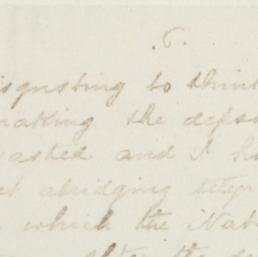 .6.
isgusting to think
making the depos
wasted and I ha
et abridging
which the Nat